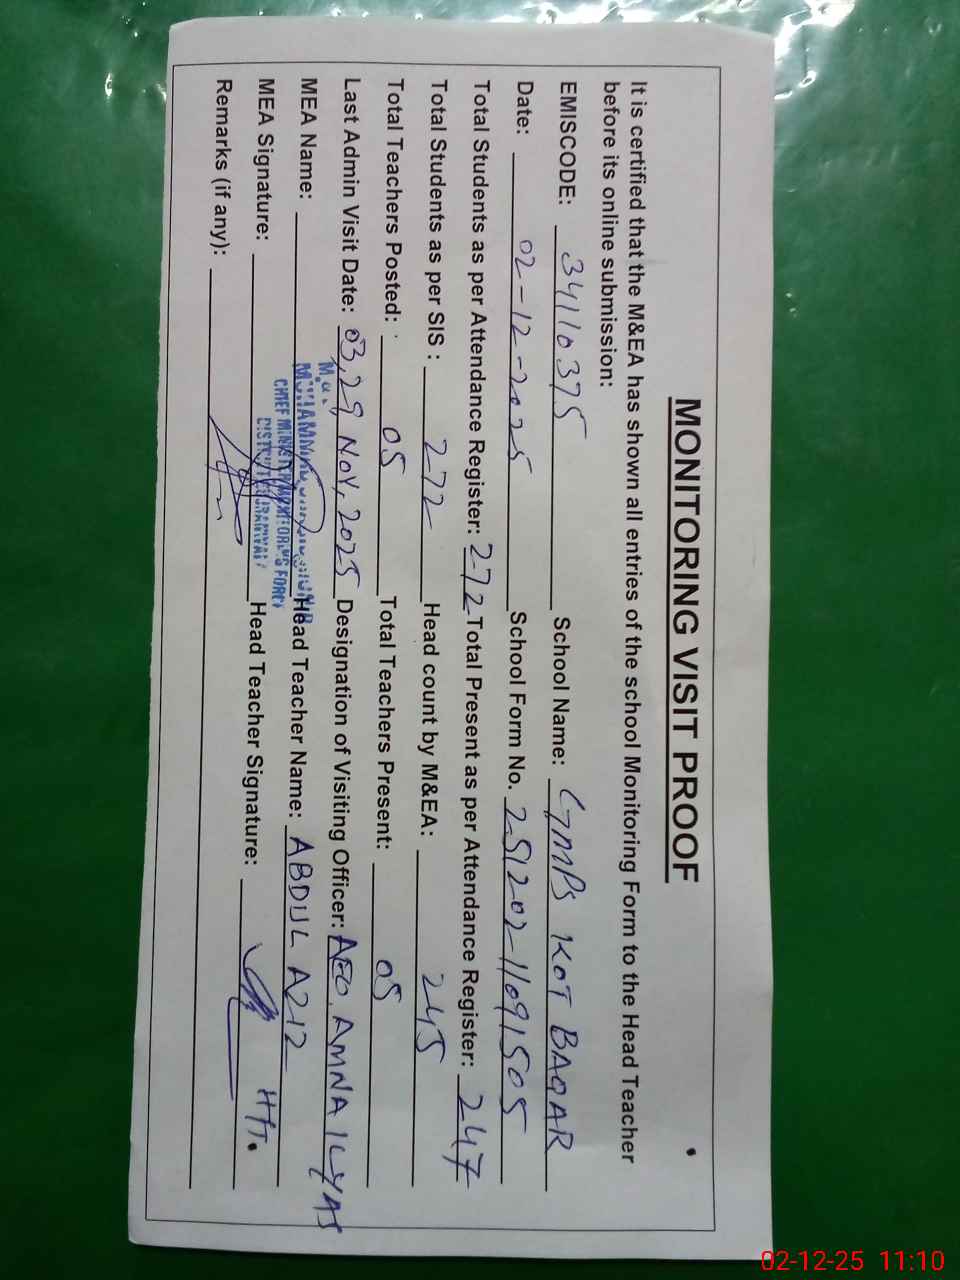 MONITORING VISIT PROOF
It is certified that the M&EA has shown all entries of the school Monitoring Form to the Head Teacher
before its online submission:
EMISCODE: 34110375 School Name: GMPS KOT BAQAR
Date: 02-12-2025 School Form No. 251202-11091505
Total Students as per Attendance Register: 272 Total Present as per Attendance Register: 247
Total Students as per SIS : 272 Head count by M&EA: 245
Total Teachers Posted: 05 Total Teachers Present: 05
Last Admin Visit Date: 03,29 NOV, 2025 Designation of Visiting Officer: AEO, AMNA ILYAS
MEA Name: Head Teacher Name: ABDUL AZIZ
MEA Signature: Head Teacher Signature: HT.
CHIEF MINISTER MONITORING FORCE
Remarks (if any):
02-12-25 11:10